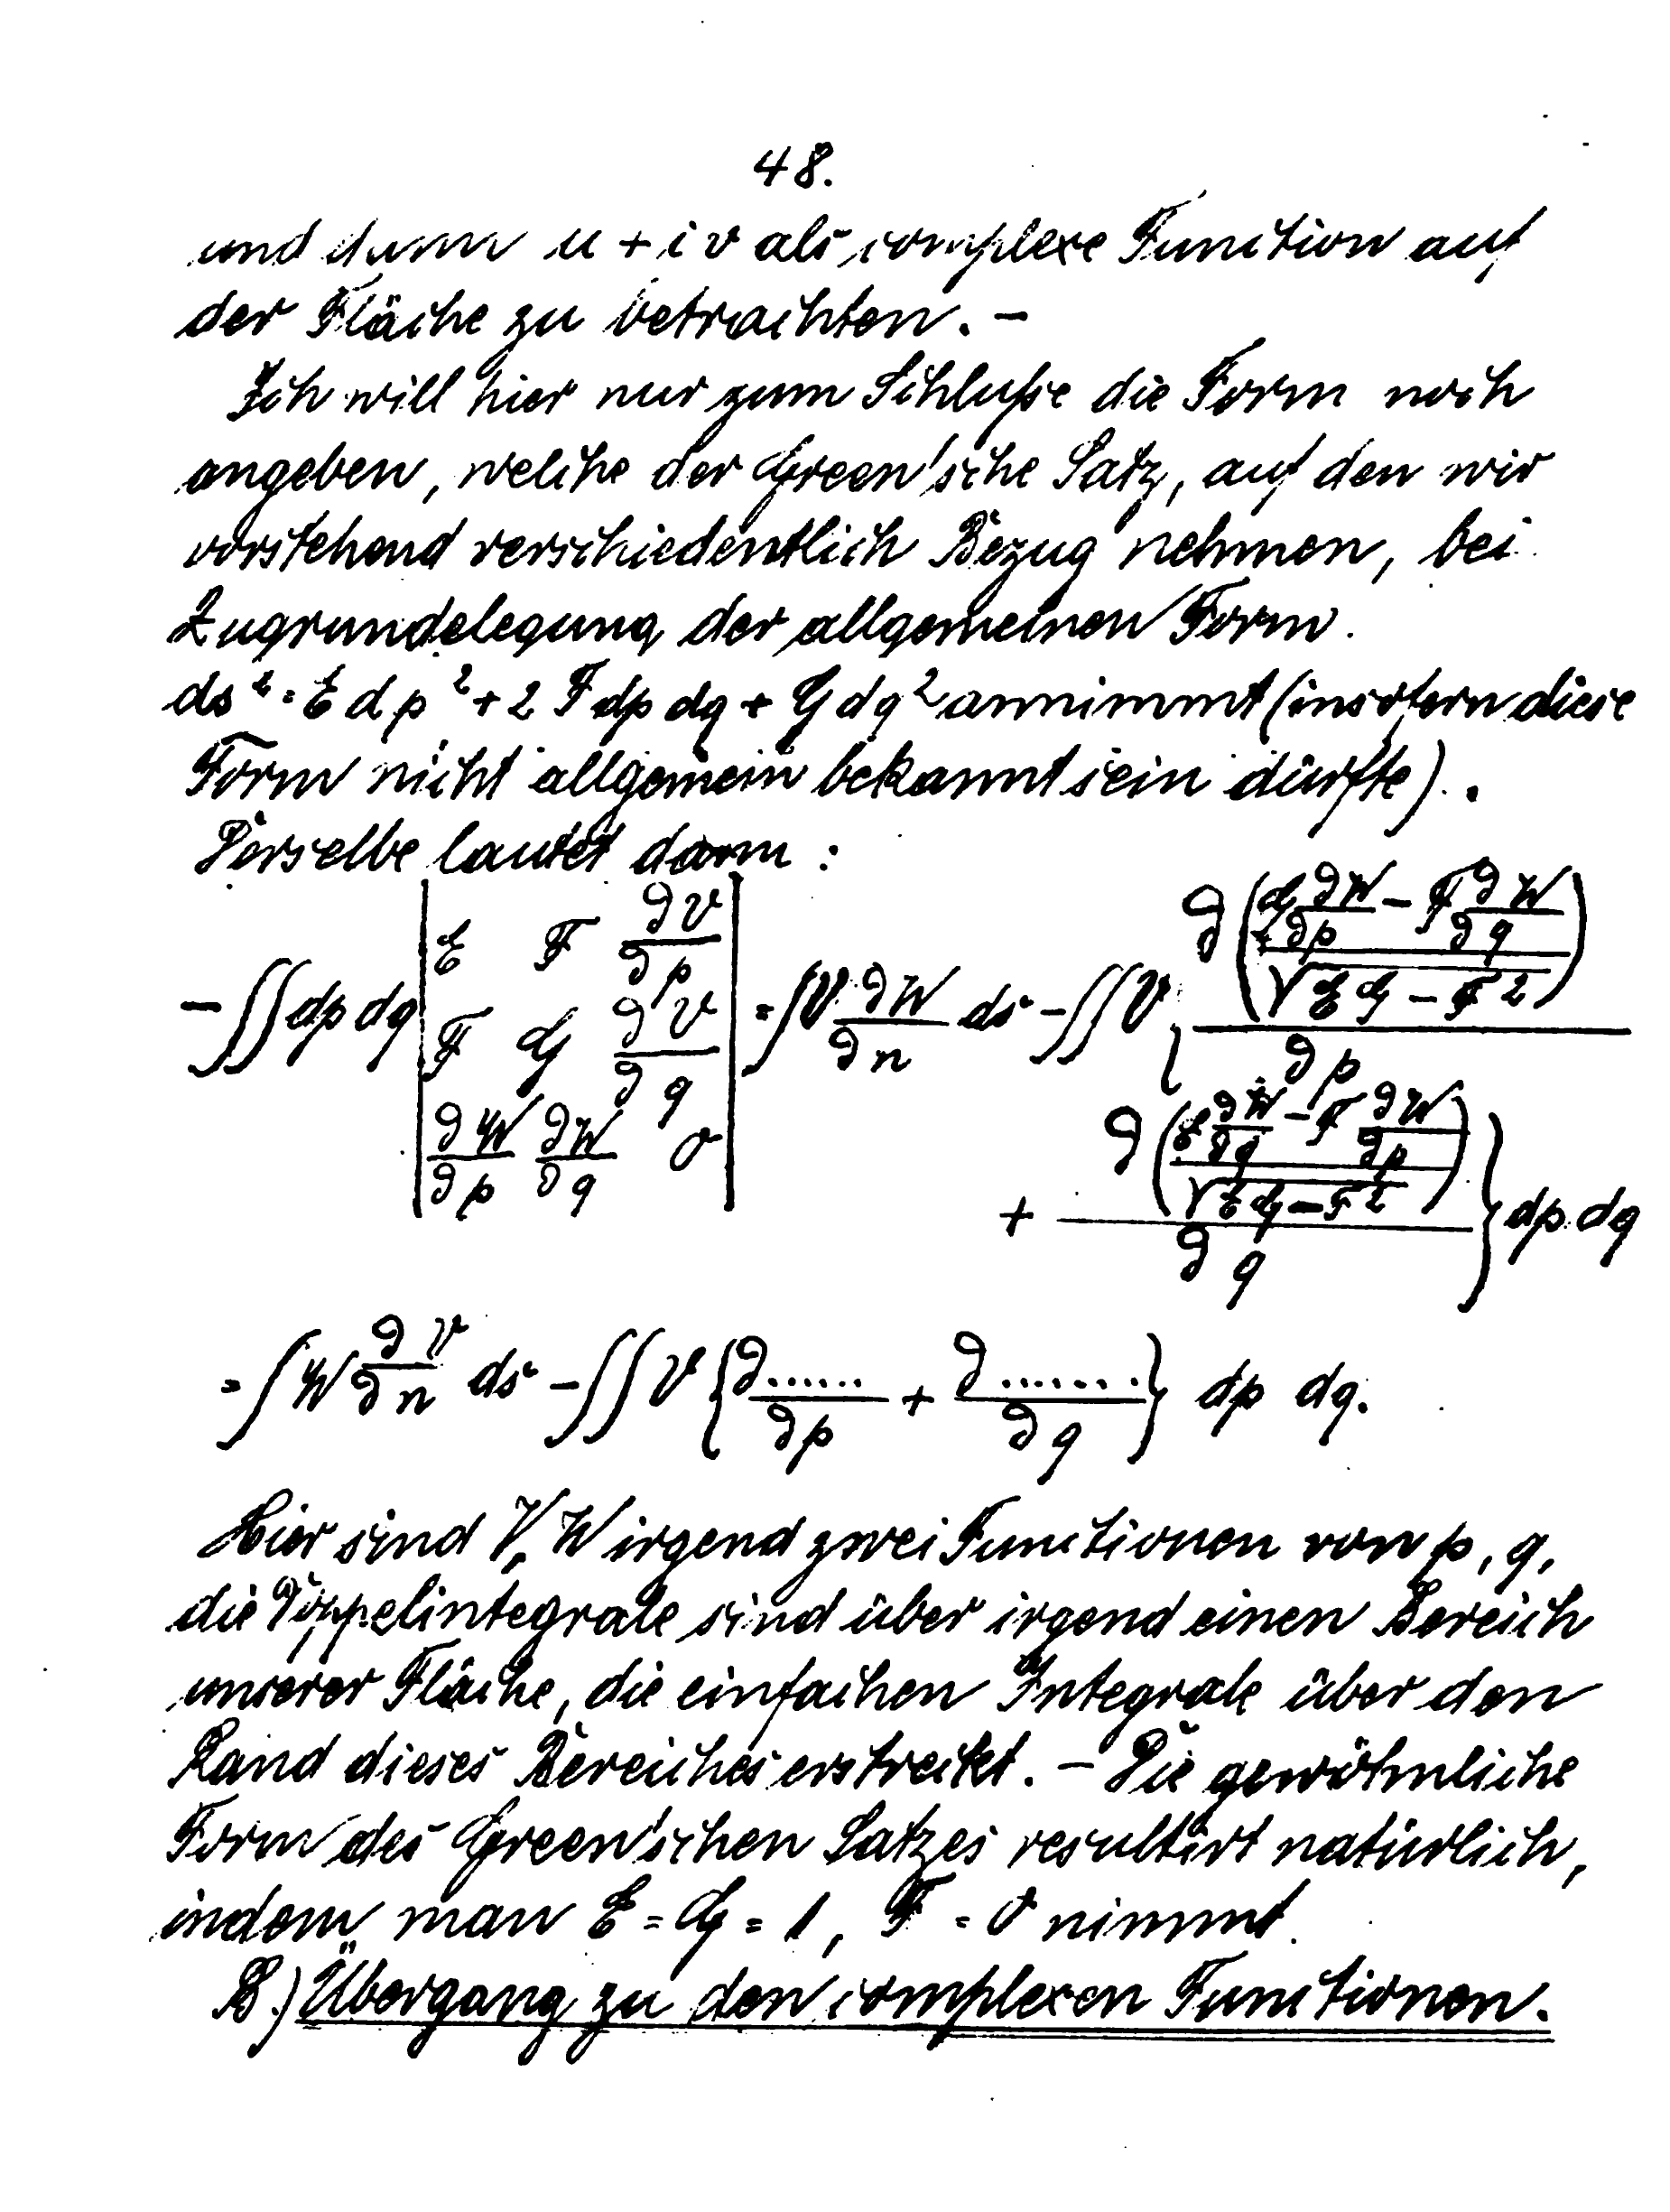 48.
und dann u + i v als complexe Function auf
der Fläche zu betrachten. –
Ich will hier nur zum Schluße die Form noch
angeben, welche der Green'sche Satz, auf den wir
vorstehend verschiedentlich Bezug nehmen, bei
Zugrundelegung der allgemeinen Form
ds² = E dp² + 2 F dp dq + G dq² annimmt (insofern diese
Form nicht allgemein bekannt sein dürfte).
Derselbe lautet dann:
$-\iint dp\,dq \begin{vmatrix} E & F & \frac{\partial V}{\partial p} \\ F & G & \frac{\partial V}{\partial q} \\ \frac{\partial W}{\partial p} & \frac{\partial W}{\partial q} & 0 \end{vmatrix} = \int V \frac{\partial W}{\partial n} ds - \iint V \left\{ \frac{\partial \left( \frac{G \frac{\partial W}{\partial p} - F \frac{\partial W}{\partial q}}{\sqrt{EG - F^2}} \right)}{\partial p} \right.$
$\left. + \frac{\partial \left( \frac{E \frac{\partial W}{\partial q} - F \frac{\partial W}{\partial p}}{\sqrt{EG - F^2}} \right)}{\partial q} \right\} dp\,dq$
$= \int W \frac{\partial V}{\partial n} ds - \iint V \left\{ \frac{\partial ......}{\partial p} + \frac{\partial .......}{\partial q} \right\} dp\,dq.$
Hier sind V, W irgend zwei Functionen von p, q,
die Doppelintegrale sind über irgend einen Bereich
unserer Fläche, die einfachen Integrale über den
Rand dieses Bereiches erstreckt. – Die gewöhnliche
Form des Green'schen Satzes resultirt natürlich,
indem man E = G = 1, F = 0 nimmt.
B.) Übergang zu den complexen Functionen.